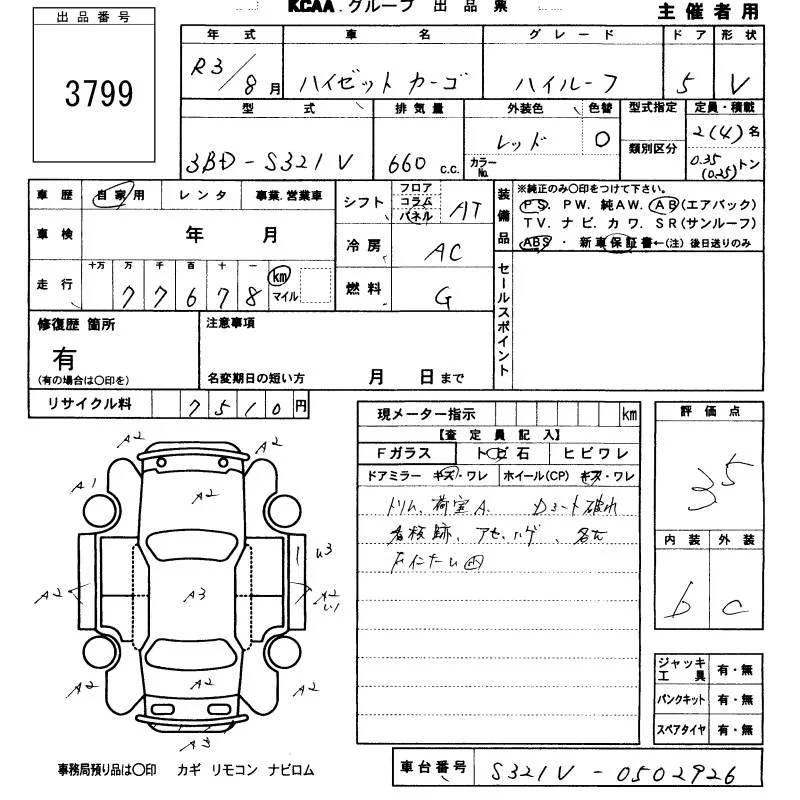 KCAA.グループ 出品票
主催者用
出品番号
3799
年式 車名 グレード ドア 形状
R3/8月 ハイゼットカーゴ ハイルーフ 5 V
型式 排気量 外装色 色替 型式指定 定員・積載
3BD-S321V 660 c.c. レッド カラーNo. 類別区分 2(4)名
0.35(0.25)トン
車歴 自家用 レンタ 事業.営業車
車検 年 月
走行 十万 万 千 百 十 一 km マイル
77678
シフト フロア コラム パネル AT
冷房 AC
燃料 G
装備品
※純正のみ〇印をつけて下さい。
PS. PW. 純AW. AB(エアバック)
TV. ナビ. カワ. SR(サンルーフ)
ABS・新車保証書←(注)後日送りのみ
セールスポイント
修復歴 箇所
有
(有の場合は〇印を)
注意事項
名変期日の短い方 月 日まで
リサイクル料 7510円
現メーター指示 km
【査定員記入】
Fガラス トビ石 ヒビワレ
ドアミラー キズ・ワレ ホイール(CP) キズ・ワレ
トリム、荷室A.
看板跡、
評価点
35
内装 外装
b c
A2 A2
A1 A2
U3
A2 A3 A2
A2 A2 A2
A3
ジャッキ工具 有・無
パンクキット 有・無
スペアタイヤ 有・無
事務局預り品は〇印 カギ リモコン ナビロム
車台番号 S321V-0502926